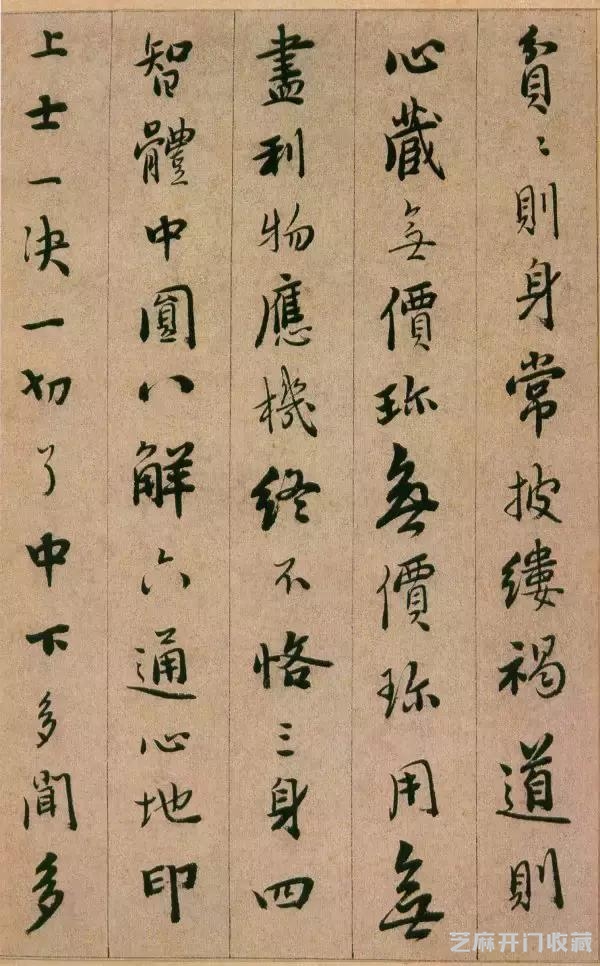 貧〻則身常披縷褐道則
心藏無價珎無價珎用無
盡利物應機終不悋三身四
智體中圓八解六通心地印
上士一決一切了中下多聞多
芝麻开门收藏